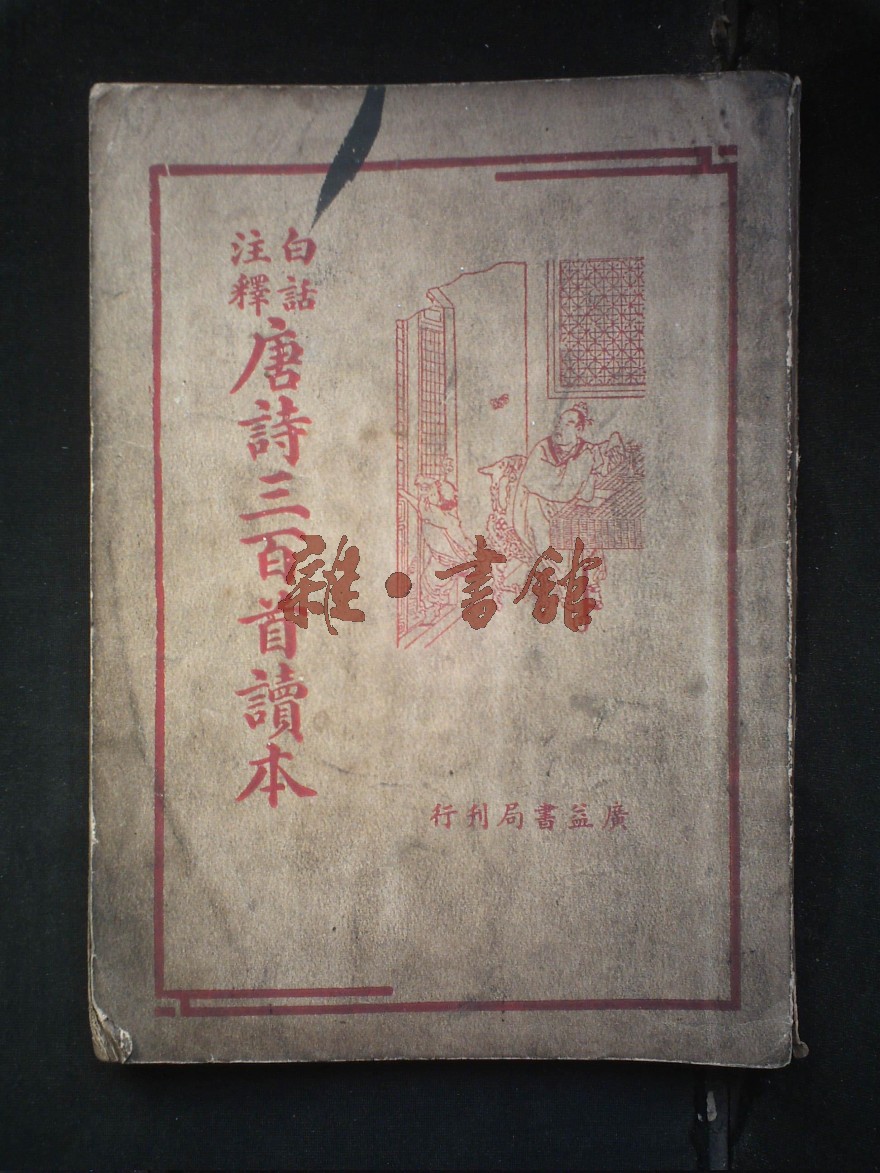 白話
注釋
唐詩三百首讀本
廣益書局刊行
雜·書館